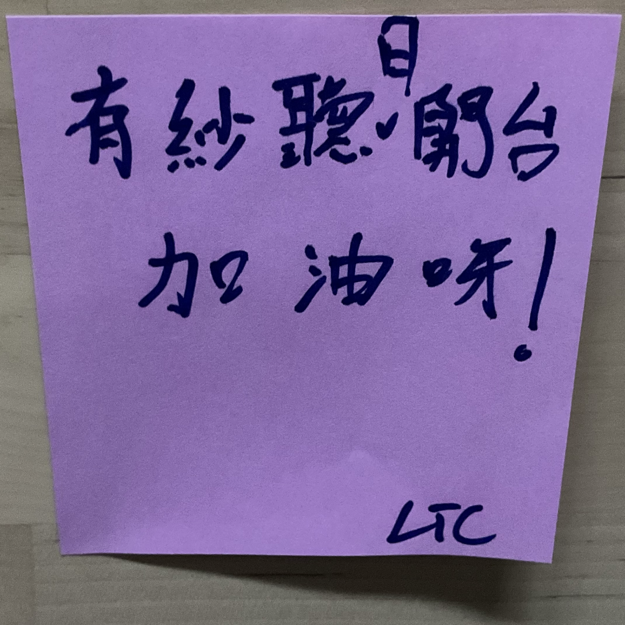 有紗聽日開台
加油呀!
LTC